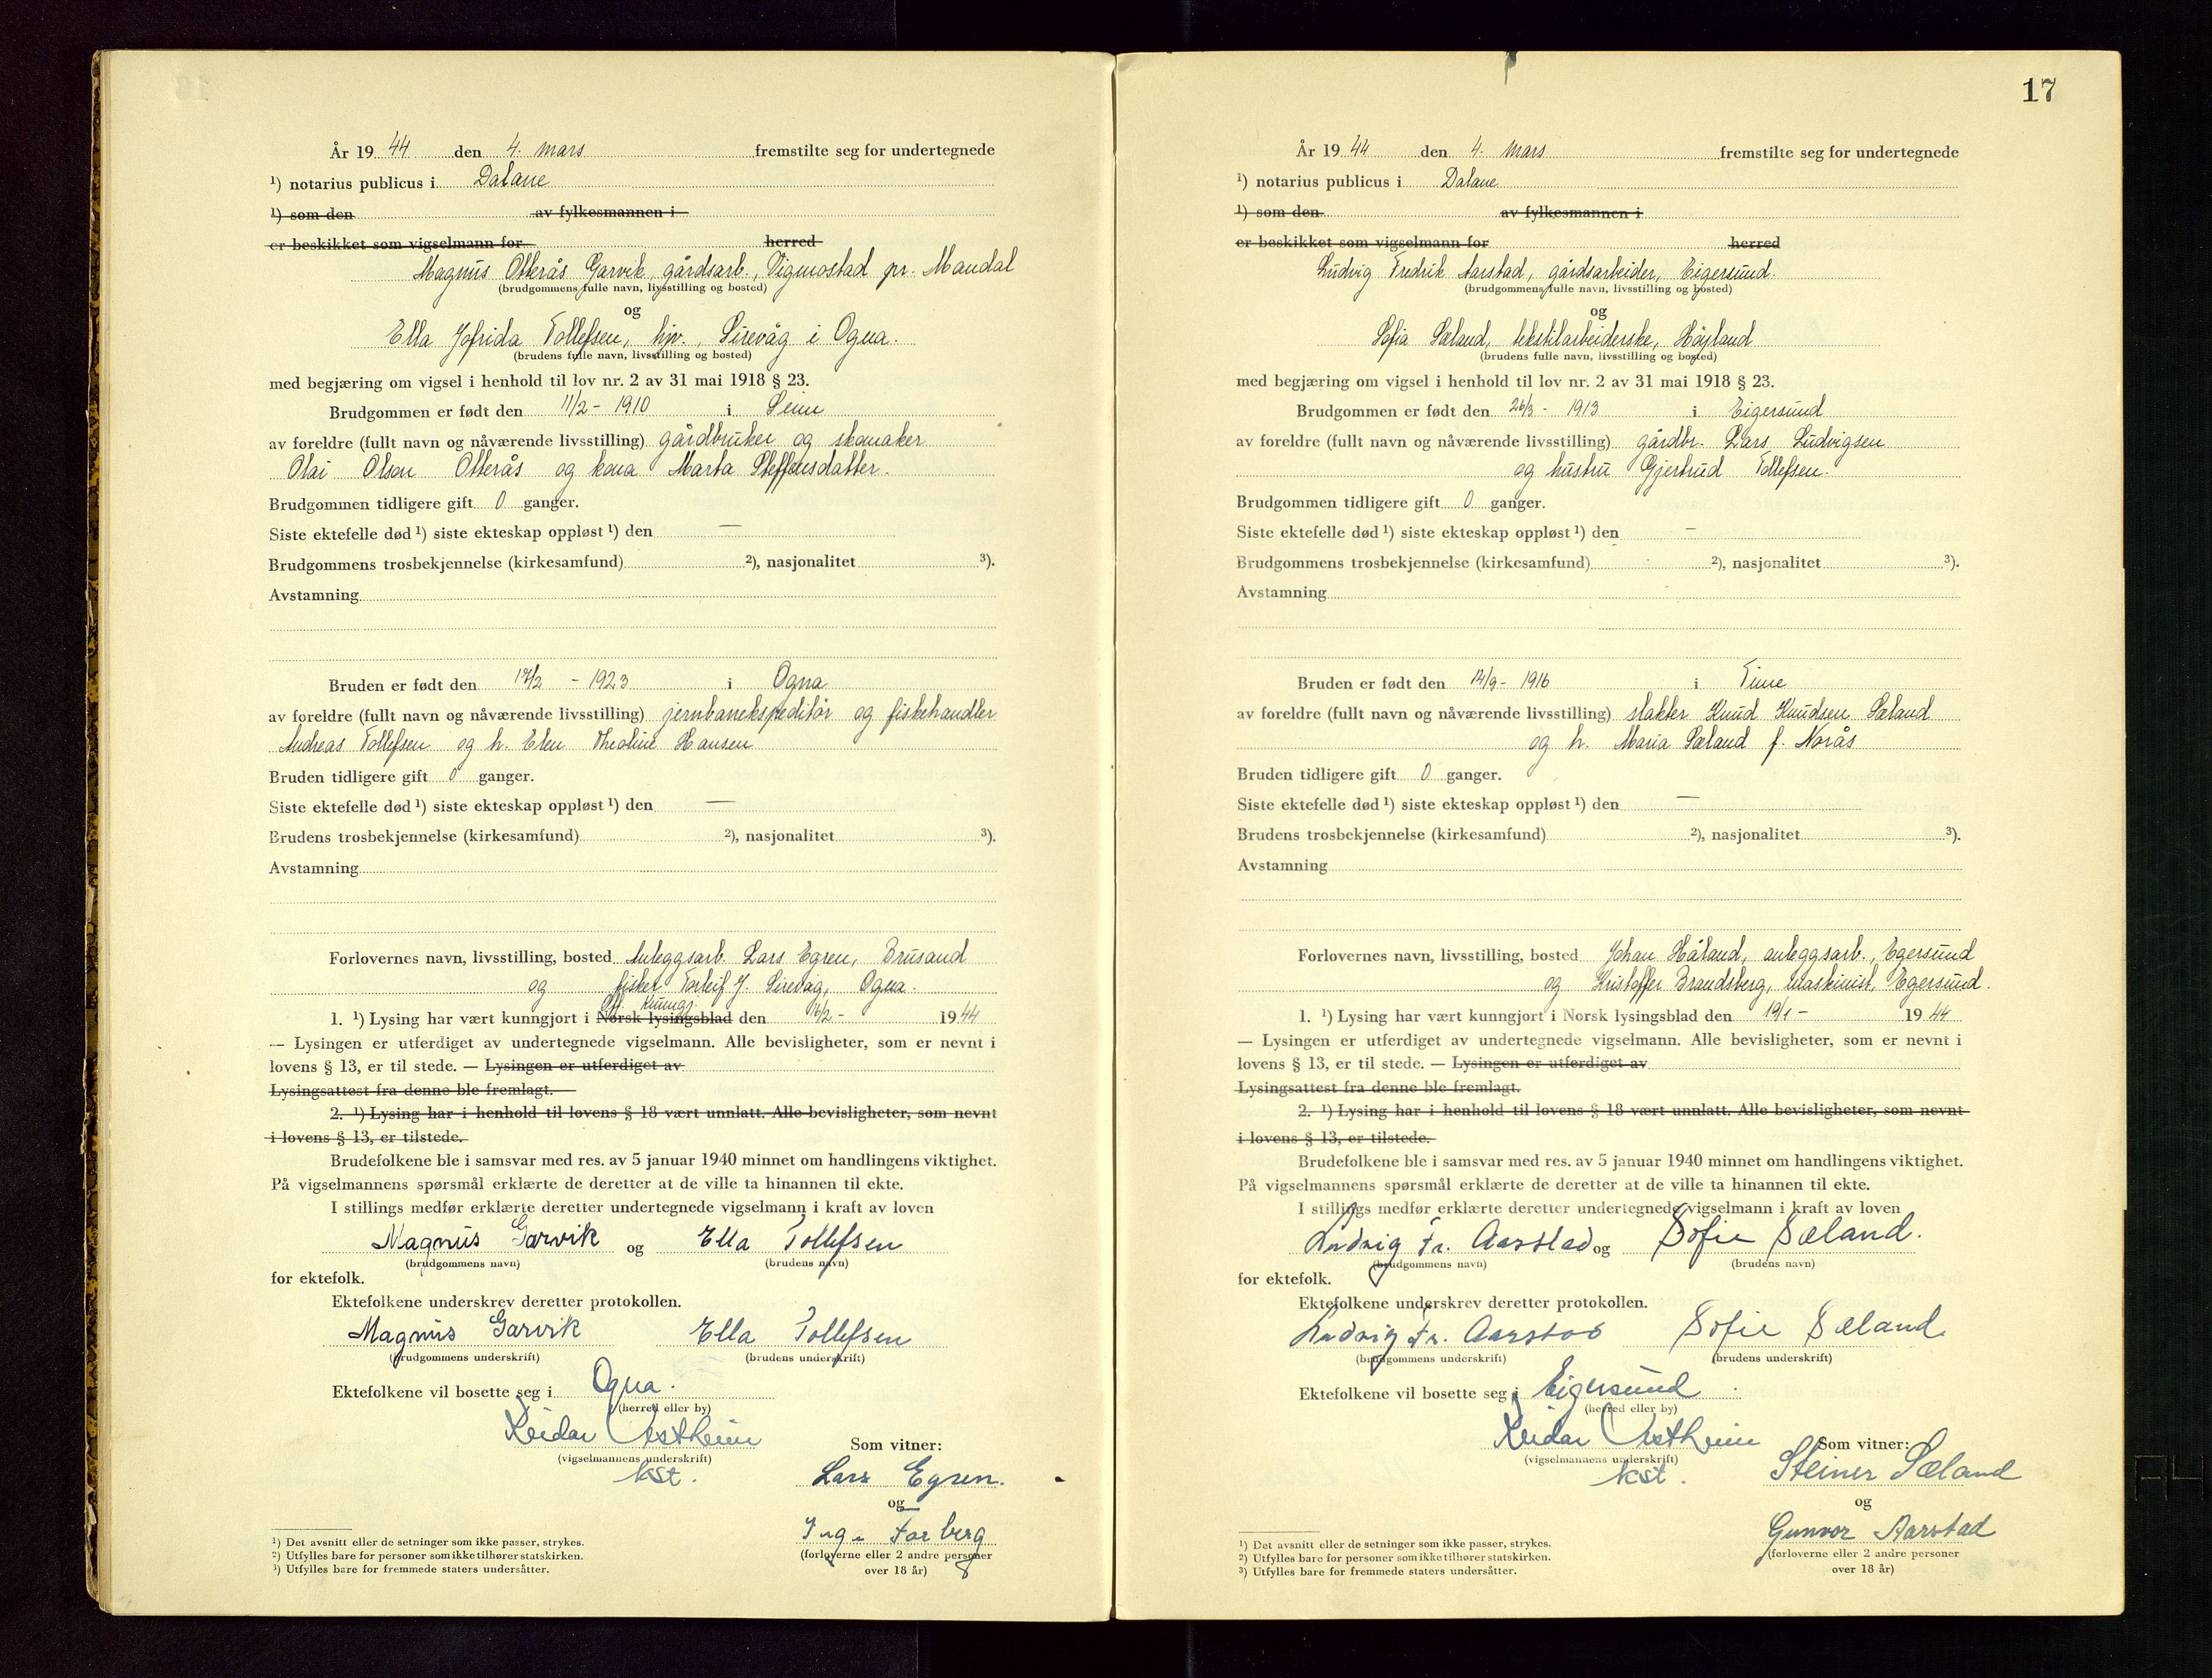 År 19 44 den 4. mars fremstilte seg for undertegnede
¹) notarius publicus i Dalane
¹) som den av fylkesmannen i
er beskikket som vigselmann for herred
Magnus Otterås Garvik, gårdsarb., Vigmostad pr. Mandal
(brudgommens fulle navn, livsstilling og bosted)
og
Ella Jofrida Tollefsen, hjv., Sirevåg i Ogna.
(brudens fulle navn, livsstilling og bosted)
med begjæring om vigsel i henhold til lov nr. 2 av 31 mai 1918 § 23.
Brudgommen er født den 11/2 - 1910 i Seim
av foreldre (fullt navn og nåværende livsstilling) gårdbruker og skomaker
Olai Olson Otterås og kona Marta Steffensdatter.
Brudgommen tidligere gift 0 ganger.
Siste ektefelle død ¹) siste ekteskap oppløst ¹) den —
Brudgommens trosbekjennelse (kirkesamfund) ²), nasjonalitet ³).
Avstamning
Bruden er født den /2 - 1923 i Ogna
av foreldre (fullt navn og nåværende livsstilling) jernbanekspeditør og fiskehandler
Andreas Tollefsen og h. Elen Theoline Hansen
Bruden tidligere gift 0 ganger.
Siste ektefelle død ¹) siste ekteskap oppløst ¹) den —
Brudens trosbekjennelse (kirkesamfund) ²), nasjonalitet ³).
Avstamning
Forlovernes navn, livsstilling, bosted Anleggsarb. Lars Egren, Brusand
og fisker Torleif J. Sirevåg, Ogna.
Off. kunngj.
1. ¹) Lysing har vært kunngjort i Norsk lysingsblad den 16/2 - 19 44
— Lysingen er utferdiget av undertegnede vigselmann. Alle bevisligheter, som er nevnt i
lovens § 13, er til stede. — Lysingen er utferdiget av
Lysingsattest fra denne ble fremlagt.
2. ¹) Lysing har i henhold til lovens § 18 vært unnlatt. Alle bevisligheter, som nevnt
i lovens § 13, er tilstede.
Brudefolkene ble i samsvar med res. av 5 januar 1940 minnet om handlingens viktighet.
På vigselmannens spørsmål erklærte de deretter at de ville ta hinannen til ekte.
I stillings medfør erklærte deretter undertegnede vigselmann i kraft av loven
Magnus Garvik og Ella Tollefsen
(brudgommens navn) (brudens navn)
for ektefolk.
Ektefolkene underskrev deretter protokollen.
Magnus Garvik Ella Tollefsen
(brudgommens underskrift) (brudens underskrift)
Ektefolkene vil bosette seg i Ogna.
(herred eller by)
Reidar Østheim
(vigselmannens underskrift)
kst.
Som vitner:
Lars Egren.
og
Inga Forberg
(forloverne eller 2 andre personer
over 18 år)
¹) Det avsnitt eller de setninger som ikke passer, strykes.
²) Utfylles bare for personer som ikke tilhører statskirken.
³) Utfylles bare for fremmede staters undersåtter.
17
År 19 44 den 4. mars fremstilte seg for undertegnede
¹) notarius publicus i Dalane
¹) som den av fylkesmannen i
er beskikket som vigselmann for herred
Ludvig Fredrik Aarstad, gårdsarbeider, Eigersund.
(brudgommens fulle navn, livsstilling og bosted)
og
Sofia Sæland, tekstilarbeiderske, Høyland
(brudens fulle navn, livsstilling og bosted)
med begjæring om vigsel i henhold til lov nr. 2 av 31 mai 1918 § 23.
Brudgommen er født den 26/3 - 1913 i Eigersund
av foreldre (fullt navn og nåværende livsstilling) gårdbr. Lars Ludvigsen
og hustru Gjertrud Tollefsen.
Brudgommen tidligere gift 0 ganger.
Siste ektefelle død ¹) siste ekteskap oppløst ¹) den —
Brudgommens trosbekjennelse (kirkesamfund) ²), nasjonalitet ³).
Avstamning
Bruden er født den 14/9 - 1916 i Time
av foreldre (fullt navn og nåværende livsstilling) slakter Knud Knudsen Sæland
og h. Maria Sæland f. Norås
Bruden tidligere gift 0 ganger.
Siste ektefelle død ¹) siste ekteskap oppløst ¹) den —
Brudens trosbekjennelse (kirkesamfund) ²), nasjonalitet ³).
Avstamning
Forlovernes navn, livsstilling, bosted Johan Håland, anleggsarb., Egersund
og Kristoffer Brandsberg, maskinist, Egersund.
1. ¹) Lysing har vært kunngjort i Norsk lysingsblad den 19/1 - 19 44
— Lysingen er utferdiget av undertegnede vigselmann. Alle bevisligheter, som er nevnt i
lovens § 13, er til stede. — Lysingen er utferdiget av
Lysingsattest fra denne ble fremlagt.
2. ¹) Lysing har i henhold til lovens § 18 vært unnlatt. Alle bevisligheter, som nevnt
i lovens § 13, er tilstede.
Brudefolkene ble i samsvar med res. av 5 januar 1940 minnet om handlingens viktighet.
På vigselmannens spørsmål erklærte de deretter at de ville ta hinannen til ekte.
I stillings medfør erklærte deretter undertegnede vigselmann i kraft av loven
Ludvig Fr. Aarstad og Sofie Sæland.
(brudgommens navn) (brudens navn)
for ektefolk.
Ektefolkene underskrev deretter protokollen.
Ludvig Fr. Aarstad Sofie Sæland.
(brudgommens underskrift) (brudens underskrift)
Ektefolkene vil bosette seg i Eigersund
(herred eller by)
Reidar Østheim
(vigselmannens underskrift)
kst.
Som vitner:
Steiner Sæland
og
Gunvor Aarstad
(forloverne eller 2 andre personer
over 18 år)
¹) Det avsnitt eller de setninger som ikke passer, strykes.
²) Utfylles bare for personer som ikke tilhører statskirken.
³) Utfylles bare for fremmede staters undersåtter.